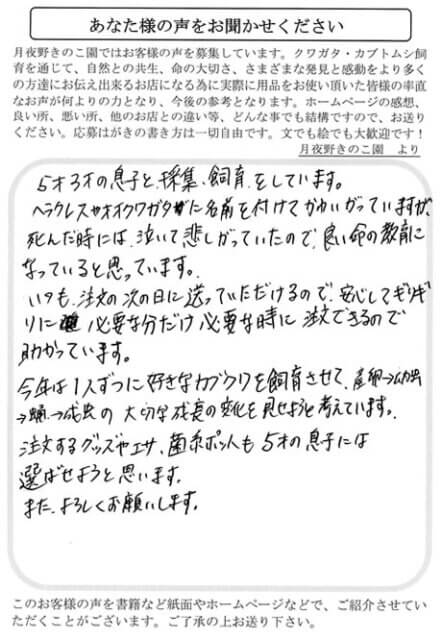 あなた様の声をお聞かせください
月夜野きのこ園ではお客様の声を募集しています。クワガタ・カブトムシ飼
育を通じて、自然との共生、命の大切さ、さまざまな発見と感動をより多く
の方達にお伝え出来るお店になる為に実際に用品をお使い頂いた皆様の率直
なお声が何よりの力となり、今後の参考となります。ホームページの感想、
良い所、悪い所、他のお店との違い等、どんな事でも結構ですので、お送り
ください。応募はがきの書き方は一切自由です。文でも絵でも大歓迎です！
月夜野きのこ園 より
5才3才の息子と、採集、飼育をしています。
ヘラクレスやオオクワガタに名前を付けてかわいがっていますが、
死んだ時には、泣いて悲しがっていたので、良い命の教育に
なっていると思っています。
いつも、注文の次の日に送っていただけるので、安心してギリギ
リに 必要な分だけ必要な時に注文できるので
助かっています。
今年は1人ずつに好きなカブクワを飼育させて、産卵→幼虫
→蛹→成虫の 大切な成長の変化を見せようと考えています。
注文するグッズやエサ、菌糸ポットも 5才の息子には
選ばせようと思います。
また、よろしくお願いします。
このお客様の声を書籍など紙面やホームページなどで、ご紹介させてい
ただくことがございます。ご了承の上お送り下さい。